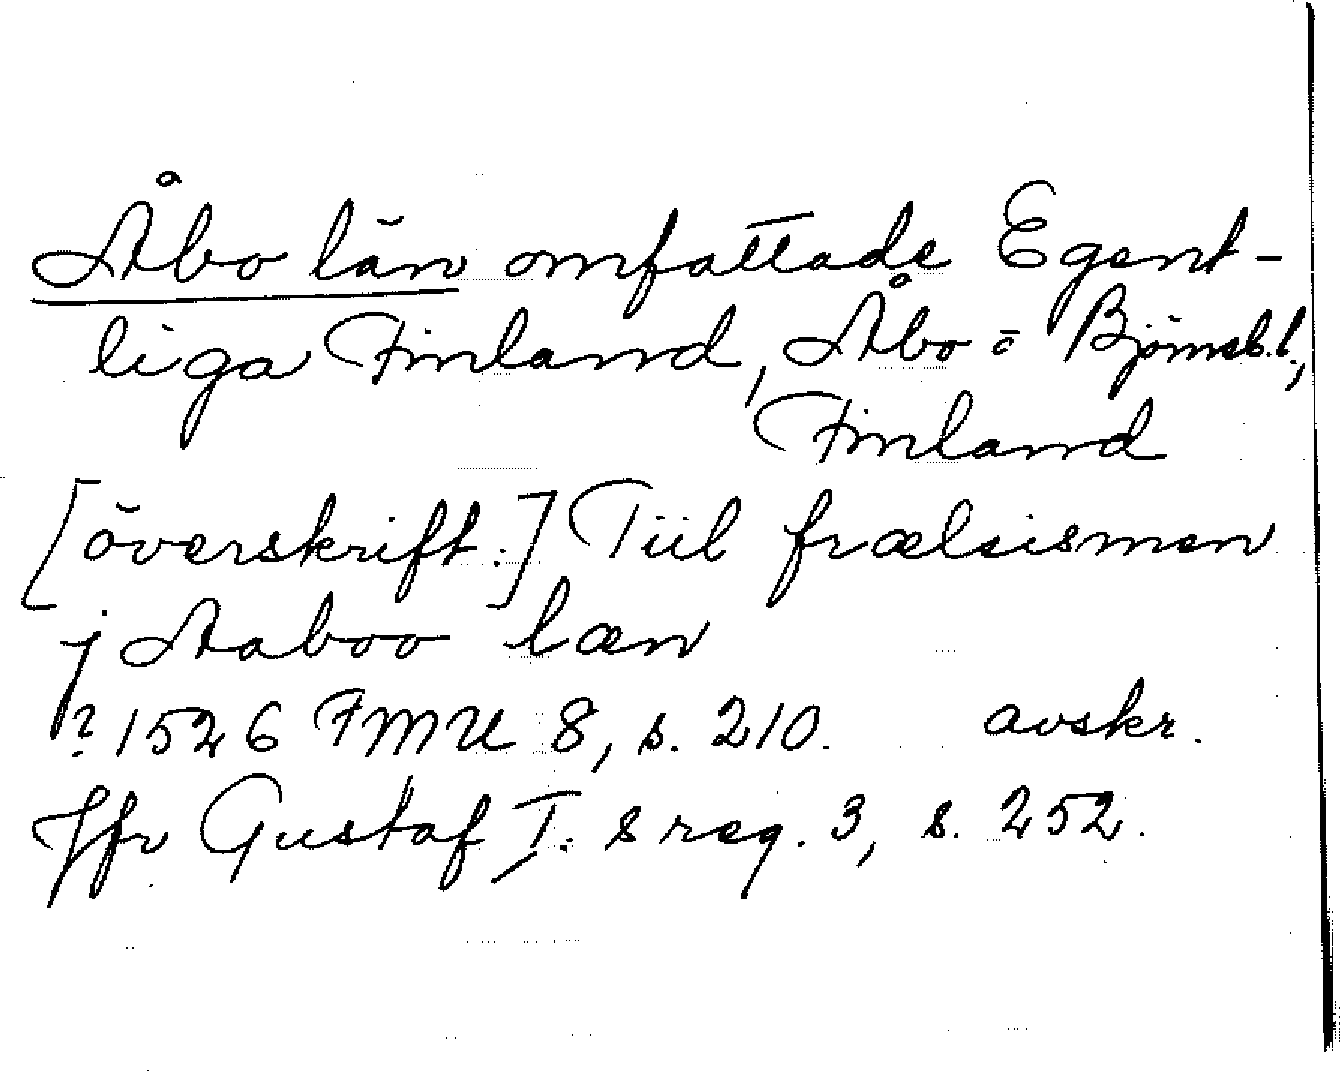 Åbo län omfattade Egent-
liga Finland, Åbo o Björneb.l.,
Finland
[överskrift:] Tiil frælsismen
j Aaboo læn
? 1526 FMU 8, s. 210. avskr.
Jfr Gustaf I:s reg. 3, s. 252.